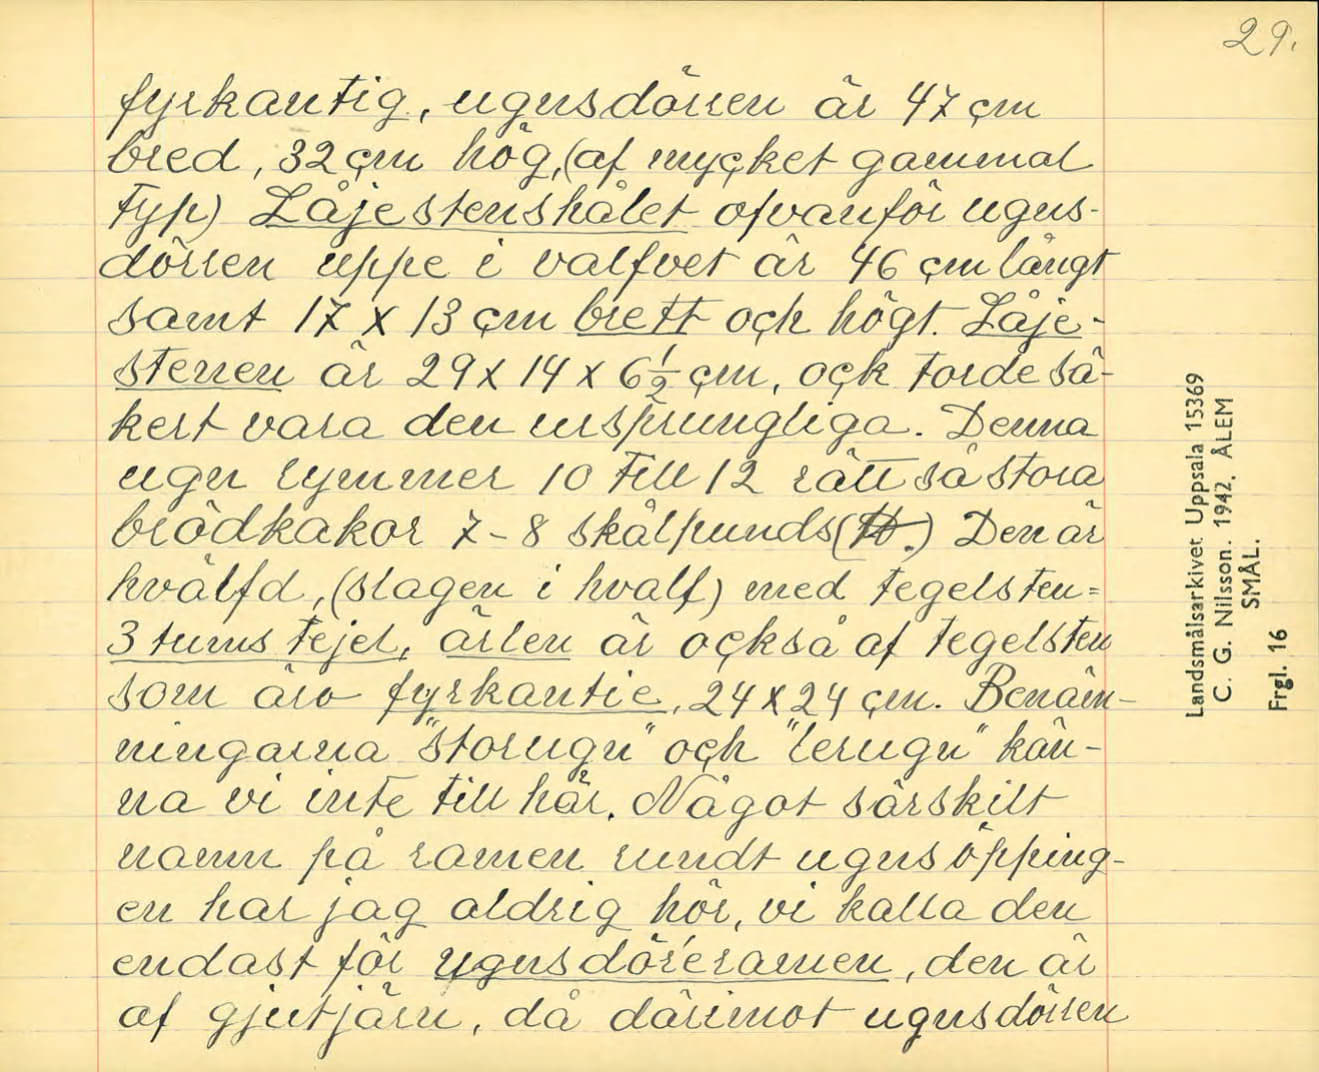 29.
fyrkantig, ugnsdörren är 47 cm
bred, 32 cm hög, (af mycket gammal
typ) Låjestenshålet ofvanför ugns-
dörren uppe i valfvet är 46 cm långt
samt 17 x 13 cm brett och högt. Låje-
stenen är 29 x 14 x 6 1/2 cm, ock torde sä-
kert vara den ursprungliga. Denna
ugn rymmer 10 till 12 rätt så stora
brödkakor 7-8 skålpunds (℔.) Den är
hvälfd, (slagen i hvalf) med tegelsten=
3 tums tejel, ärlen är också af tegelsten
som äro fyrkantie, 24 x 24 cm. Benäm-
ningarna "storugn" och "lerugn" kän-
na vi inte till här. Något särskilt
namn på ramen rundt ugnsöpping-
en har jag aldrig hör, vi kalla den
endast för ugnsdöréramen, den är
af gjutjärn, då därimot ugnsdörren
Landsmålsarkivet Uppsala 15369
C. G. Nilsson. 1942. ÅLEM
SMÅL.
Frgl. 16